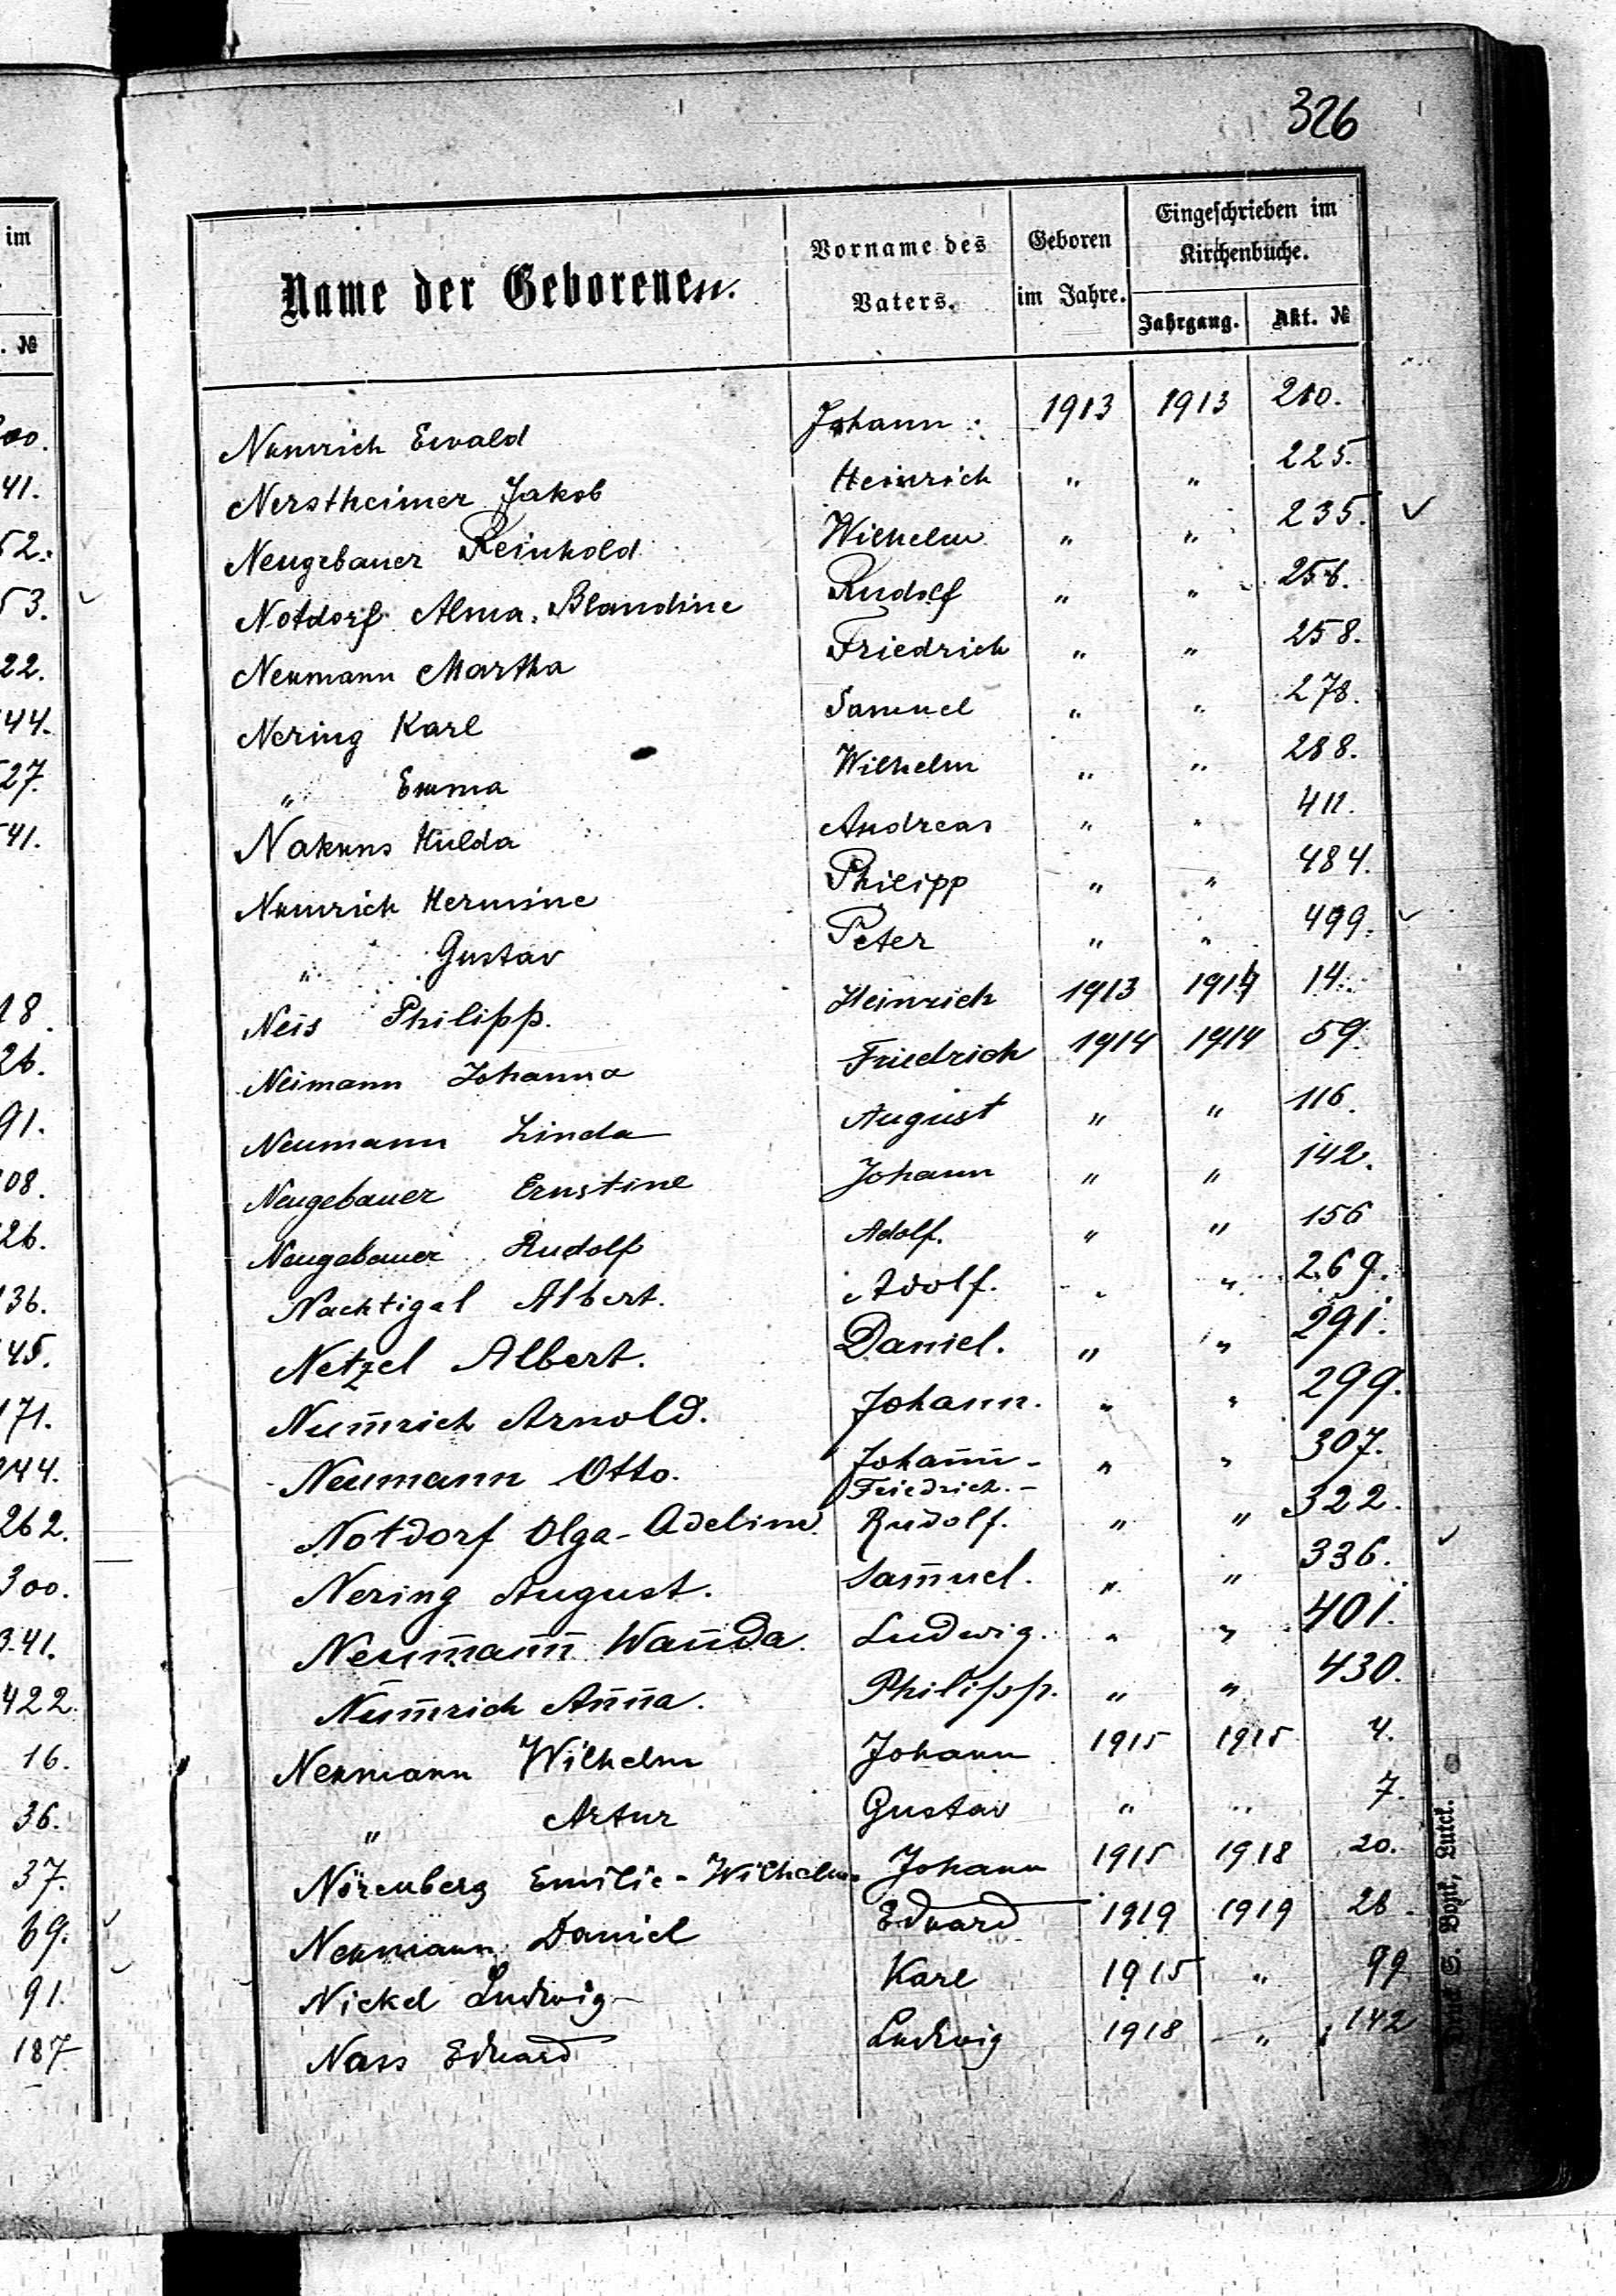 326
im
. №
Name der Geborenen.
Vorname des Vaters.
Geboren im Jahre.
Eingeschrieben im Kirchenbuche.
Jahrgang. Akt. №
Numrich Ewald Johann 1913 1913 210.
Nerstheimer Jakob Heinrich " " 225.
Neugebauer Reinhold Wilhelm " " 235. ✓
Notdorf Alma, Blandine Rudolf " " 256.
Neumann Martha Friedrich " " 258.
Nering Karl Samuel " " 278.
" Emma Wilhelm " " 288.
Nakuns Hulda Andreas " " 411.
Numrich Hermine Philipp " " 484.
" Gustav Peter " " 499. ✓
Neis Philipp. Heinrich 1913 1914 14.
Neimann Johanna Friedrich 1914 1914 59.
Neumann Linda August " " 116.
Neugebauer Ernstine Johann " " 142.
Neugebauer Rudolf Adolf. " " 156
Nachtigal Albert. Adolf. " " 269.
Netzel Albert. Daniel. " " 291.
Num̄rich Arnold. Johann. " " 299.
Neumann Otto. Johan̄n- Friedrich.- " " 307.
Notdorf Olga-Adeline. Rudolf. " " 322.
Nering August. Sam̄uel. " " 336. ✓
Neuman̄n Wan̄da. Ludwig. " " 401.
Num̄rich An̄na. Philipp. " " 430.
Neumann Wilhelm Johann 1915 1915 4.
" Artur Gustav " " 7.
Nörenberg Emilie-Wilhelm. Johann 1915 1918 20.
Neumann Daniel Eduard 1919 1919 26.
Nickel Ludwig Karl 1915 " 99
Nass Eduard Ludwig 1918 " 142
41.
52.
53. ✓
22.
44.
27.
41.
18.
26.
91.
08.
26.
36.
45.
171.
244.
262.
300.
341.
422.
16.
36.
37.
69. ✓
91. ✓
187